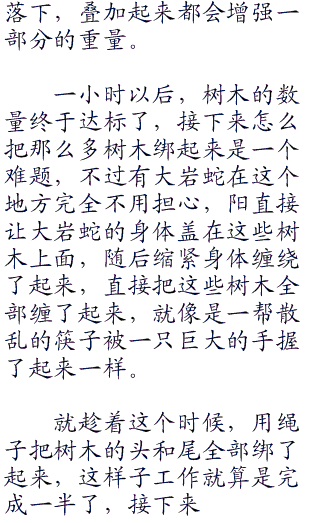 落下，叠加起来都会增强一
部分的重量。
一小时以后，树木的数
量终于达标了，接下来怎么
把那么多树木绑起来是一个
难题，不过有大岩蛇在这个
地方完全不用担心，阳直接
让大岩蛇的身体盖在这些树
木上面，随后缩紧身体缠绕
了起来，直接把这些树木全
部缠了起来，就像是一帮散
乱的筷子被一只巨大的手握
了起来一样。
就趁着这个时候，用绳
子把树木的头和尾全部绑了
起来，这样子工作就算是完
成一半了，接下来